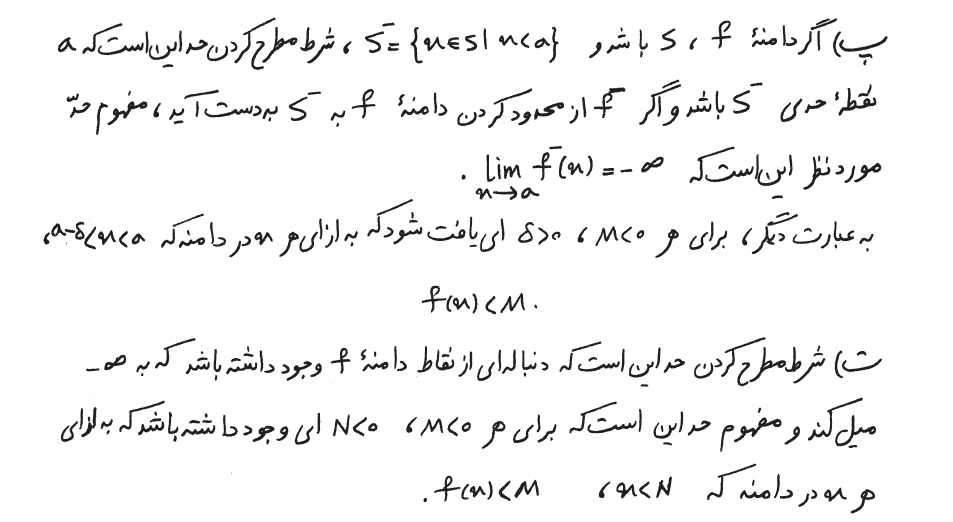 پ) اگر دامنهٔ f ، S باشد و S⁻ = {x∈S | x<a} ، شرط مطرح کردن حد این است که a
نقطهٔ حدی S⁻ باشد و اگر f⁻ از محدود کردن دامنهٔ f به S⁻ به دست آید، مفهوم حدّ
مورد نظر این است که lim f⁻(x) = -∞ .
x→a
به عبارت دیگر، برای هر M<0 ، δ>0 ای یافت شود که به ازای هر x در دامنه که a-δ<x<a،
f(x)<M.
ت) شرط مطرح کردن حد این است که دنباله‌ای از نقاط دامنهٔ f وجود داشته باشد که به -∞
میل کند و مفهوم حد این است که برای هر M<0 ، N<0 ای وجود داشته باشد که به ازای
هر x در دامنه که x<N ، f(x)<M .